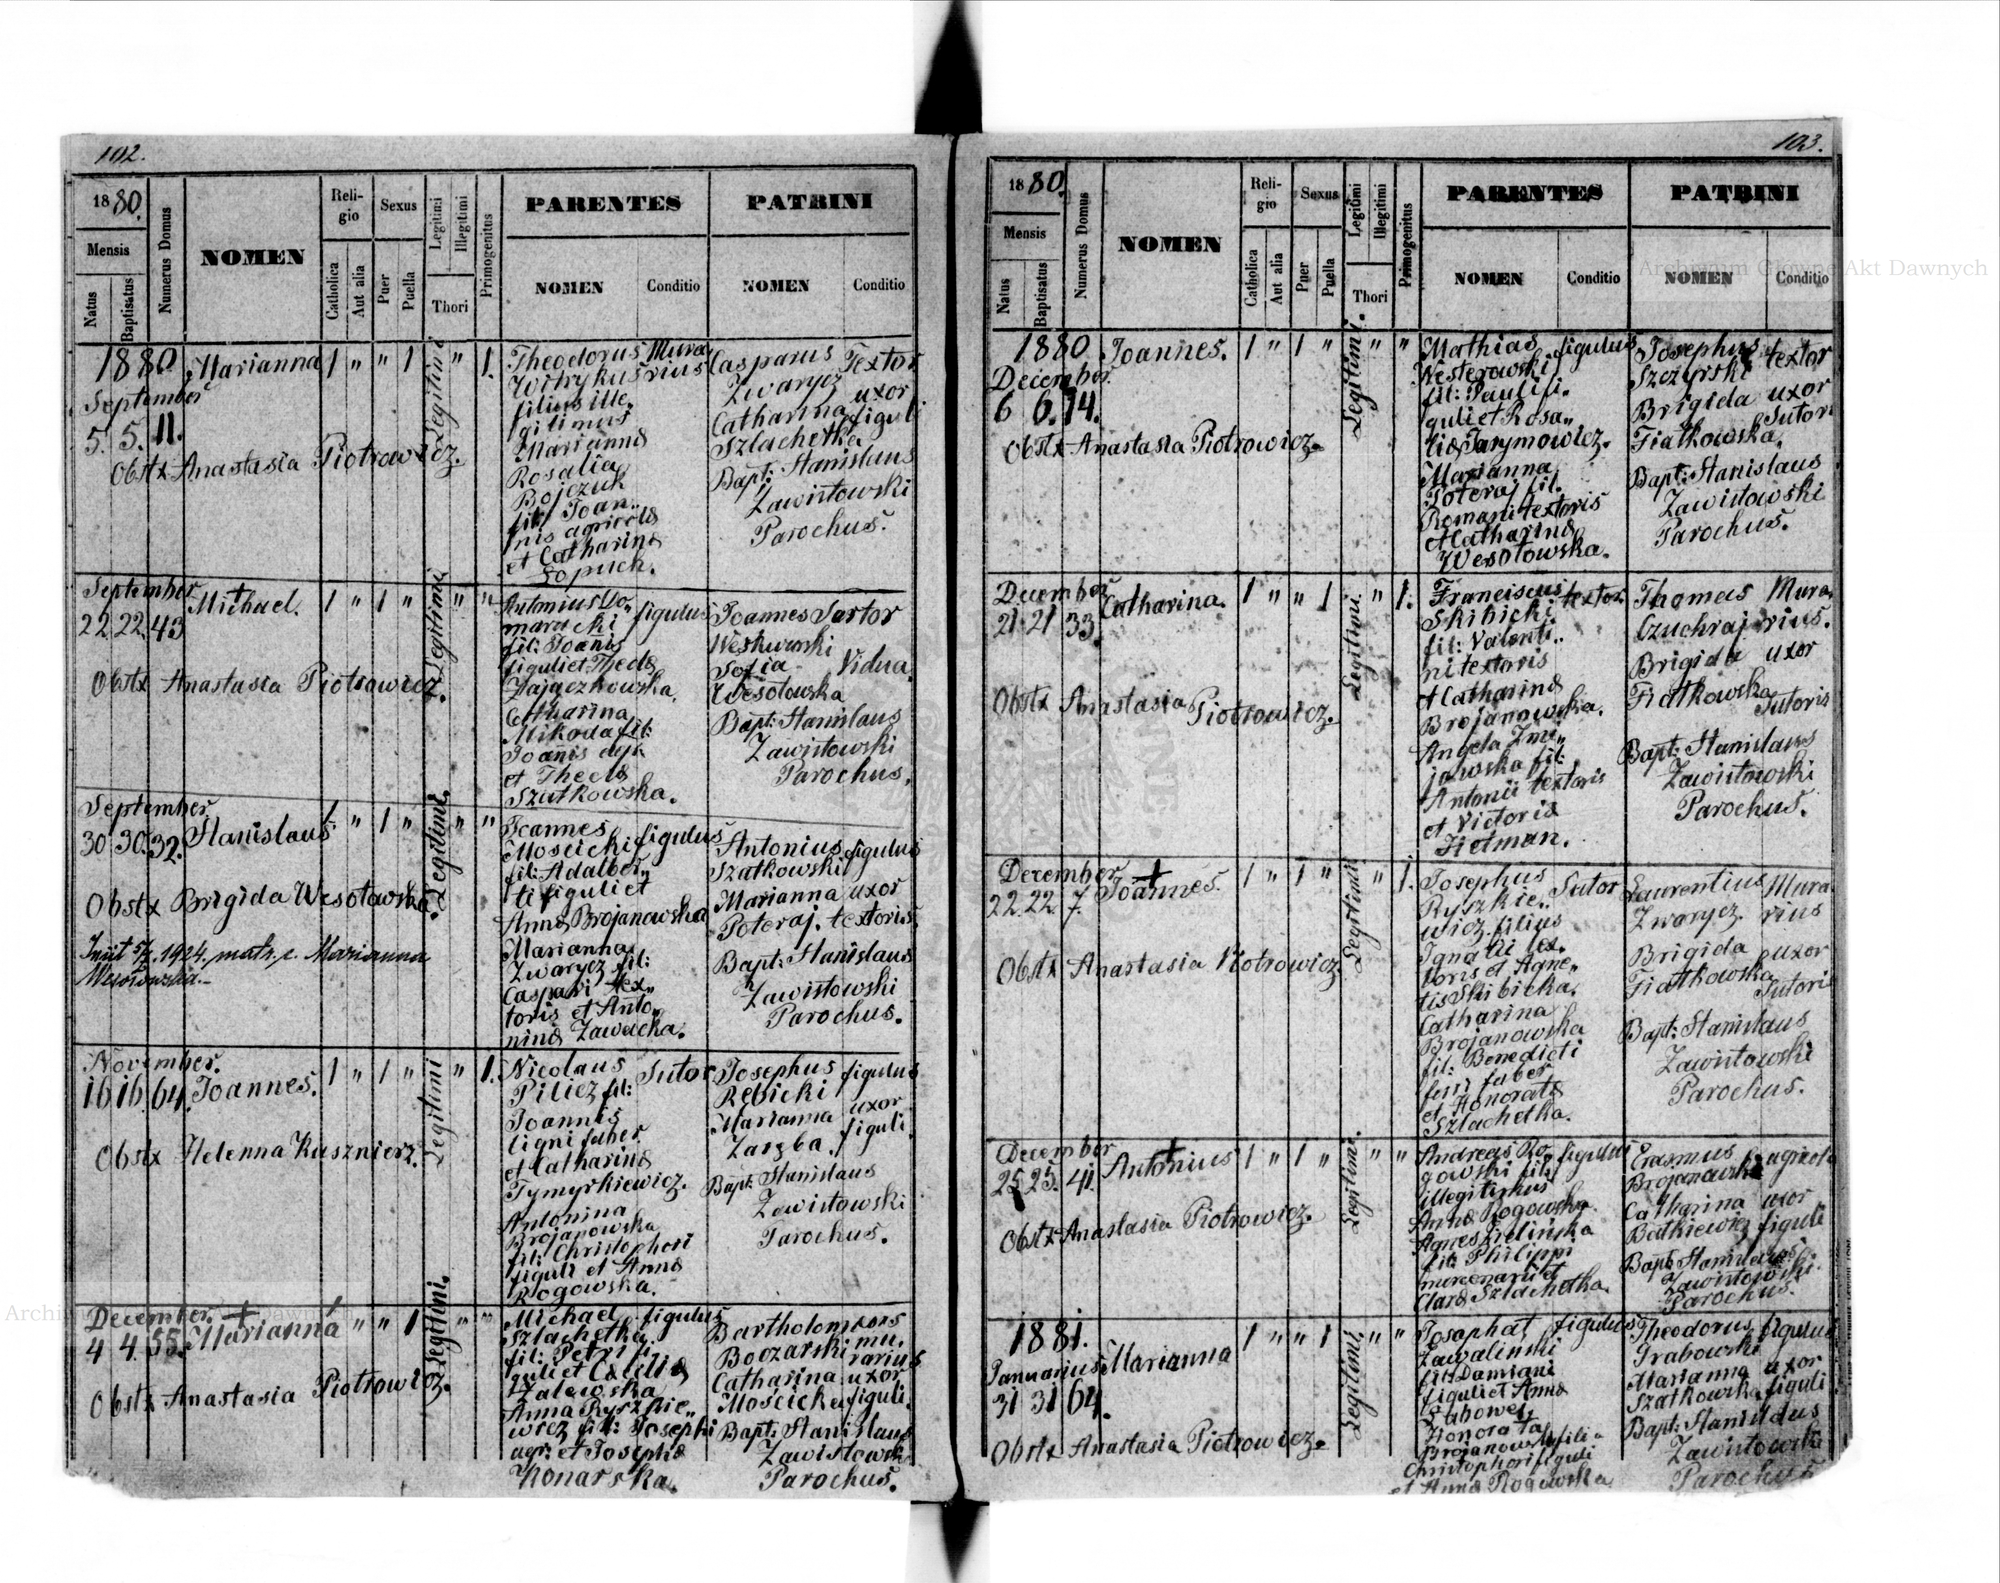 102.
1880.
Mensis
Natus
Baptisatus
Numerus Domus
NOMEN
Religio
Catholica
Aut alia
Sexus
Puer
Puella
Legitimi
Illegitimi
Thori
Primogenitus
PARENTES
NOMEN
Conditio
PATRINI
NOMEN
Conditio
1880
September
5. 5. 11.
Marianna
1 " " 1
Legitimi
" 1.
Obstx Anastasia Piotrowicz.
Theodorus Mura
rius
filius ille
gitimus
Marianna
Rosalia
Bojczuk
fil: Joan
nis agricolæ
et Catharinæ
Łopuch.
Casparus Textor
Zwarycz
Catharina uxor
Szlachetka figuli
Bapt: Stanislaus
Zawistowski
Parochus.
September
22. 22. 43
Michael.
1 " 1 "
Legitimi
" "
Obstx Anastasia Piotrowicz.
Antonius Do
maracki figulus
fil: Joañis
figuli et Theclæ
Zajączkowska.
Catharina
Mikoda fil:
Joañis
et Theclæ
Szatkowska.
Joannes Sartor
Sofia Vidua.
Wesołowska
Bapt: Stanislaus
Zawistowski
Parochus.
September
30 30. 32.
Stanislaus
1 " 1 "
Legitimi.
" "
Obstx Brigida Wesołowska.
1924. matr. c. Marianna
Joannes
Mościcki figulus
fil: Adalber
ti figuli et
Annæ Brojanowska
Marianna
Zwarycz fil:
Caspari tex
toris et Anto
ninæ Zawacka.
Antonius figulus
Szatkowski
Marianna uxor
Potoraj. textoris.
Bapt: Stanislaus
Zawistowski
Parochus.
November.
16 16. 64.
Joannes.
1 " 1 "
Legitimi
" 1.
Obstx Helenna Kusznierz.
Nicolaus Sutor
Pilicz fil:
Joannis
ligni faber
et Catharinæ
Tymyrkiewicz.
Antonina
Brojanowska
fil: Christophori
figuli et Annæ
Rogowska.
Josephus figulus
Rębicki
Marianna uxor
Zaręba. figuli.
Bapt: Stanislaus
Zawistowski
Parochus.
December.
4 4. 55.
Marianna
1 " " 1
Legitimi.
" "
Obstx Anastasia Piotrowicz.
Michael figulus
Szlachetka.
fil: Petri fi
guli et Cæciliæ
Zalewska
Anna Ryszkie
wicz fil: Josephi
agr: et Josephæ
Konarska.
Bartholomæus
Boczarski mu
rarius
Catharina uxor
Mościcka figuli.
Bapt: Stanislaus
Zawistowski
Parochus.
103.
1880.
Mensis
Natus
Baptisatus
Numerus Domus
NOMEN
Religio
Catholica
Aut alia
Sexus
Puer
Puella
Legitimi
Illegitimi
Thori
Primogenitus
PARENTES
NOMEN
Conditio
PATRINI
NOMEN
Conditio
1880
December.
6 6. 14.
Joannes.
1 " 1 "
Legitimi.
" "
Obstx Anastasia Piotrowicz.
Mathias figulus
Nesterowski
fil: Pauli fi
guli et Rosa
liæ Jarymowicz.
Marianna
Potoraj fil.
Romani textoris
et Catharinæ
Wesołowska.
Josephus textor
Szczyrski
Brigida uxor
Sutoris
Fiałkowska.
Bapt: Stanislaus
Zawistowski
Parochus.
December.
21 21 33.
Catharina.
1 " " 1
Legitimi.
" 1.
Obstx Anastasia Piotrowicz.
Franciscus textor
Skibicki
fil: Valenti
ni textoris
et Catharinæ
Brojanowska.
Angela Zmi
jowska fil:
Antonii textoris
et Victoriæ
Hetman.
Thomas Mura
Czuchraj rius.
Brigida uxor
Fiałkowska
Sutoris
Bapt: Stanislaus
Zawistowski
Parochus.
December
22. 22. 7.
Joannes.
1 " 1 "
Legitimi
" 1.
Obstx Anastasia Piotrowicz
Josephus Sutor
Ryszkie
wicz filius
Ignatii tex
toris et Agne
tis Skibicka.
Catharina
Brojanowska
fil: Benedicti
ferri faber
et Honoratæ
Szlachetka.
Laurentius Mura
Zwarycz. rius
Brigida uxor
Fiałkowska
Sutoris
Bapt: Stanislaus
Zawistowski
Parochus.
December
25 25. 41.
Antonius
1 " 1 "
Legitimi.
" "
Obstx Anastasia Piotrowicz.
Andreas Ro
gowski fil: figulus
illegitimus
Annæ Rogowska.
Agnes Zielińska
fil: Philippi
mercenarii et
Claræ Szlachetka.
Erasmus agricola
Brojanowski
Catharina uxor
Bułkiewicz figuli
Bapt: Stanislaus
Zawistowski
Parochus.
1881.
Januarius
31 31 64.
Marianna
1 " " 1
Legitimi.
" "
Obstx Anastasia Piotrowicz.
Josaphat figulus
Zawaliński
fil: Damiani
figuli et Annæ
Honorata
Brojanowska filia
Christophori figuli
et Annæ Rogowska
Theodorus figulus
Grabowski
Marianna uxor
Szatkowska figuli
Bapt: Stanislaus
Zawistowski
Parochus.
Archiwum Główne Akt Dawnych
Archiwum Główne Akt Dawnych